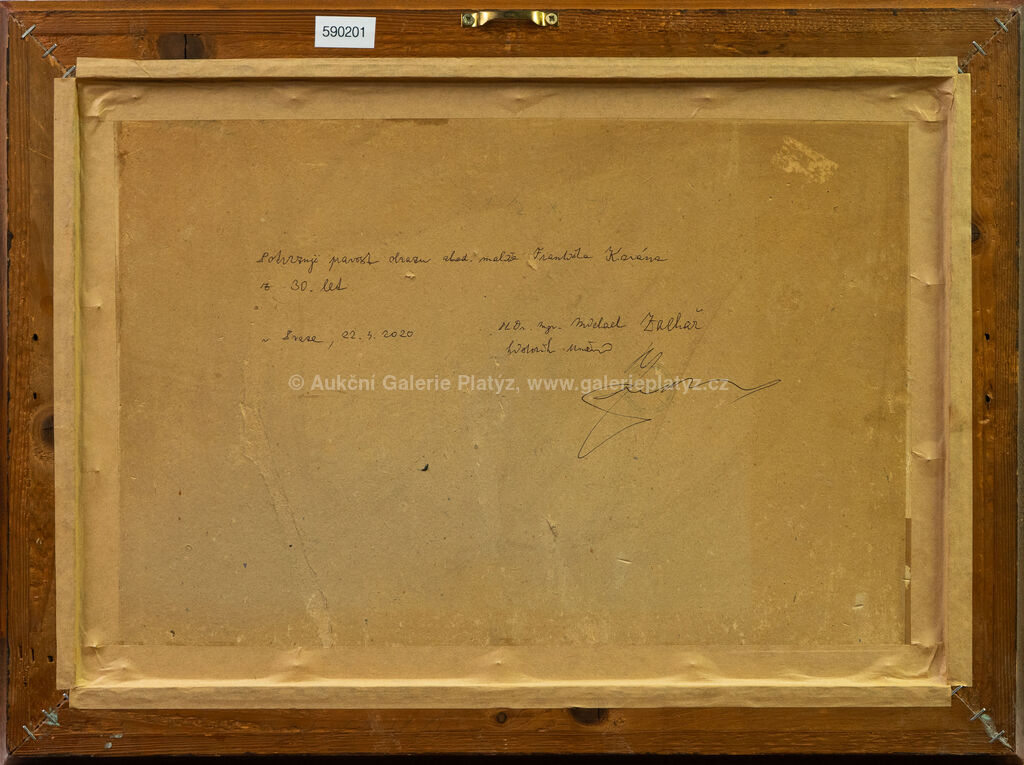 590201
Potvrzuji pravost obrazu akad. malíře Františka Xaver
z 30. let
v Praze, 22. 4. 2020
PhDr. Mgr. Michael Zachař
historik umění
© Aukční Galerie Platýz, www.galerieplatyz.cz